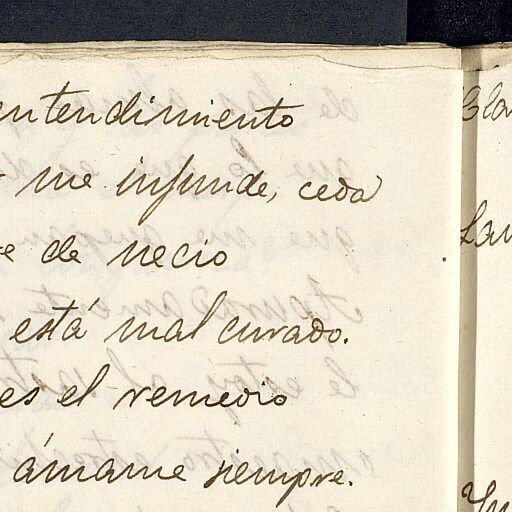 entendimiento
me infunde, ceda
de necio
está mal curado.
es el remedio
ámame siempre.